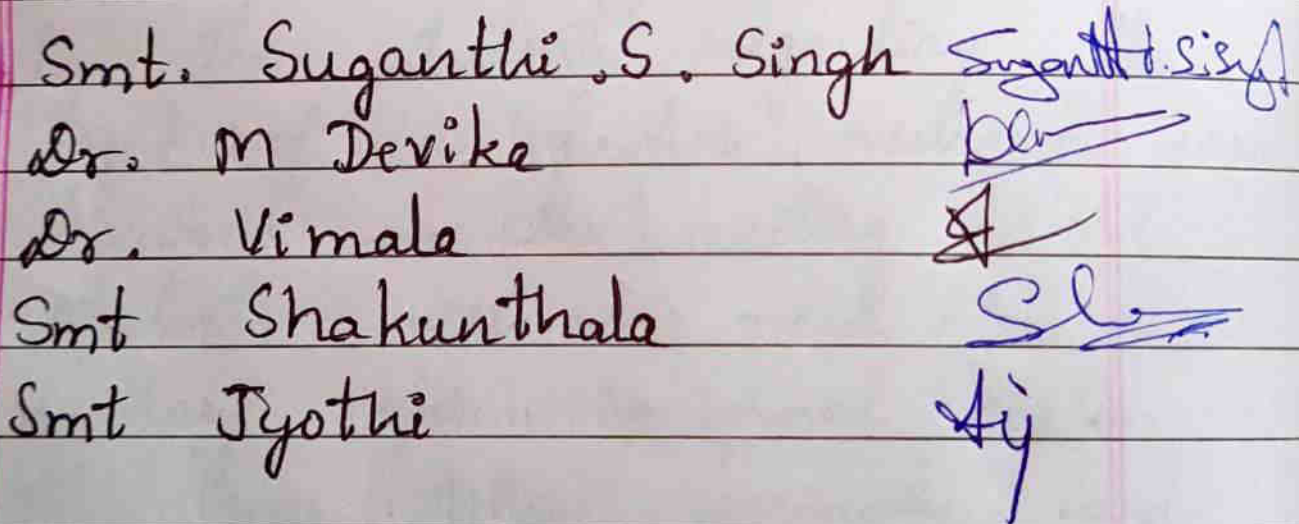 Smt. Suganthi .S. Singh Suganthi.S.Singh
Dr. M Devika
Dr. Vimala
Smt Shakunthala
Smt Jyothi